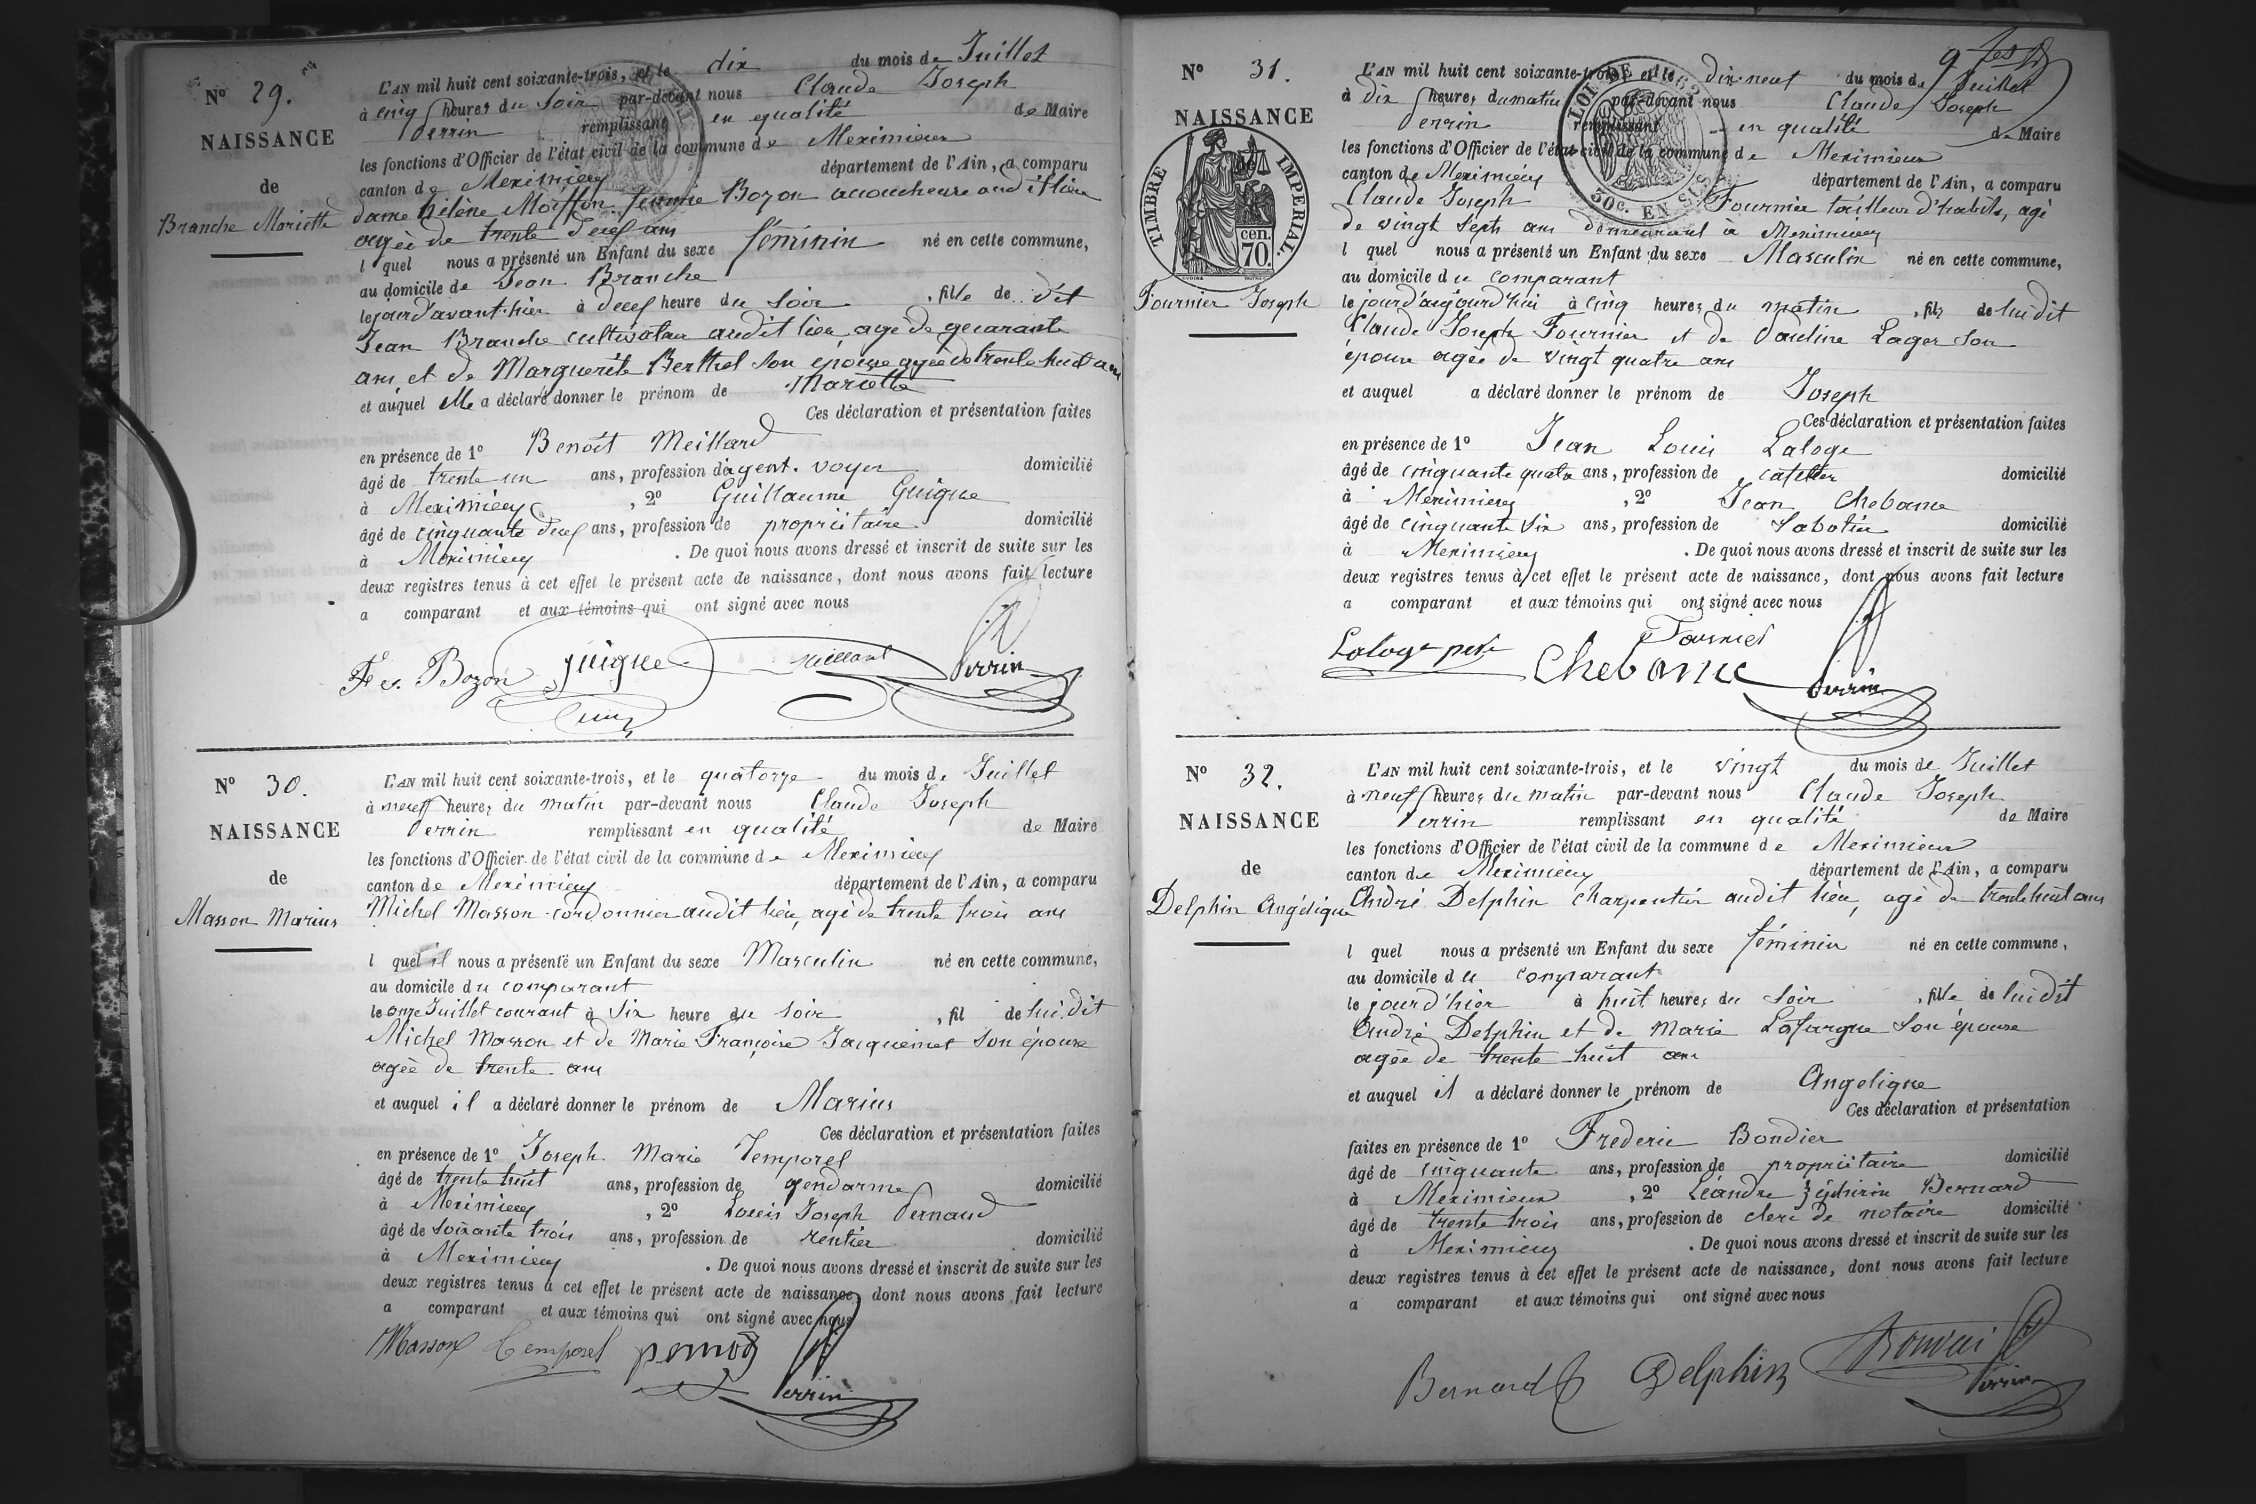 N° 29.
NAISSANCE
de
Branche Mariette
L'AN mil huit cent soixante-trois, et le dix du mois de Juillet
à cinq heures du soir par-devant nous Claude Joseph
Perrin remplissant en qualité de Maire
les fonctions d'Officier de l'état civil de la commune de Meximieux
canton de Meximieux département de l'Ain, a comparu
dame hélène Moiffon femme Bozon accoucheuse audit lieu
agée de trente deux ans
l quel nous a présenté un Enfant du sexe féminin né en cette commune,
au domicile de Jean Branche
le jour d'avant-hier à deux heure du soir , fille de dit
Jean Branche cultivateur audit lieu, agé de quarante
ans, et de Marguerite Berthet son épouse agée de trente huit ans
et auquel elle a déclaré donner le prénom de Mariette
Ces déclaration et présentation faites
en présence de 1° Benoît Meillard
âgé de trente un ans, profession d'agent-voyer domicilié
à Meximieux , 2° Guillaume Guigue
âgé de cinquante deux ans, profession de propriétaire domicilié
à Meximieux . De quoi nous avons dressé et inscrit de suite sur les
deux registres tenus à cet effet le présent acte de naissance, dont nous avons fait lecture
a comparant et aux témoins qui ont signé avec nous
Fe. Bozon Guigue Meillard Perrin
N° 30.
NAISSANCE
de
Masson Marius
L'AN mil huit cent soixante-trois, et le quatorze du mois de Juillet
à neuf heures du matin par-devant nous Claude Joseph
Perrin remplissant en qualité de Maire
les fonctions d'Officier de l'état civil de la commune de Meximieux
canton de Meximieux département de l'Ain, a comparu
Michel Masson cordonnier audit lieu, agé de trente trois ans
l quel il nous a présenté un Enfant du sexe Masculin né en cette commune,
au domicile du comparant
le onze Juillet courant à six heure du soir , fil de lui dit
Michel Masson et de Marie Françoise Jacquemet son épouse
agée de trente ans
et auquel il a déclaré donner le prénom de Marius
Ces déclaration et présentation faites
en présence de 1° Joseph Marie Temporel
âgé de trente huit ans, profession de gendarme domicilié
à Meximieux , 2° Louis Joseph Pernaud
âgé de soixante trois ans, profession de rentier domicilié
à Meximieux . De quoi nous avons dressé et inscrit de suite sur les
deux registres tenus à cet effet le présent acte de naissance, dont nous avons fait lecture
a comparant et aux témoins qui ont signé avec nous
Masson Temporel Perrin
N° 31.
NAISSANCE
de
TIMBRE IMPERIAL.
cen.
70.
Fournier Joseph
LOI DE
30c. EN SUS
L'AN mil huit cent soixante-trois, et le dix-neuf du mois de Juillet
à dix heures du matin par-devant nous Claude Joseph
Perrin remplissant en qualité de Maire
les fonctions d'Officier de l'état civil de la commune de Meximieux
canton de Meximieux département de l'Ain, a comparu
Claude Joseph Fournier tailleur d'habits, agé
de vingt sept ans demeurant à Meximieux
l quel nous a présenté un Enfant du sexe Masculin né en cette commune,
au domicile du comparant
le jour d'aujourd'hui à cinq heures du matin , fils de lui dit
Claude Joseph Fournier et de Pauline Lager son
épouse agée de vingt quatre ans
et auquel a déclaré donner le prénom de Joseph
Ces déclaration et présentation faites
en présence de 1° Jean Louis Laloge
âgé de cinquante quatre ans, profession de cafetier domicilié
à Meximieux , 2° Jean Chebance
âgé de cinquante six ans, profession de sabotier domicilié
à Meximieux . De quoi nous avons dressé et inscrit de suite sur les
deux registres tenus à cet effet le présent acte de naissance, dont nous avons fait lecture
a comparant et aux témoins qui ont signé avec nous
Laloge père Fournier
Chebance Perrin
N° 32.
NAISSANCE
de
Delphin Angélique
L'AN mil huit cent soixante-trois, et le vingt du mois de Juillet
à neuf heures du matin par-devant nous Claude Joseph
Perrin remplissant en qualité de Maire
les fonctions d'Officier de l'état civil de la commune de Meximieux
canton de Meximieux département de l'Ain, a comparu
André Delphin charpentier audit lieu, agé de trente huit ans
l quel nous a présenté un Enfant du sexe féminin né en cette commune,
au domicile du comparant
le jour d'hier à huit heures du soir , fille de lui dit
André Delphin et de Marie Lafargue son épouse
agée de trente huit ans
et auquel il a déclaré donner le prénom de Angelique
Ces déclaration et présentation
faites en présence de 1° Frederic Bondier
âgé de cinquante ans, profession de propriétaire domicilié
à Meximieux , 2° Léandre Zéphirin Bernard
âgé de trente trois ans, profession de clerc de notaire domicilié
à Meximieux . De quoi nous avons dressé et inscrit de suite sur les
deux registres tenus à cet effet le présent acte de naissance, dont nous avons fait lecture
a comparant et aux témoins qui ont signé avec nous
Bernard Delphin Perrin